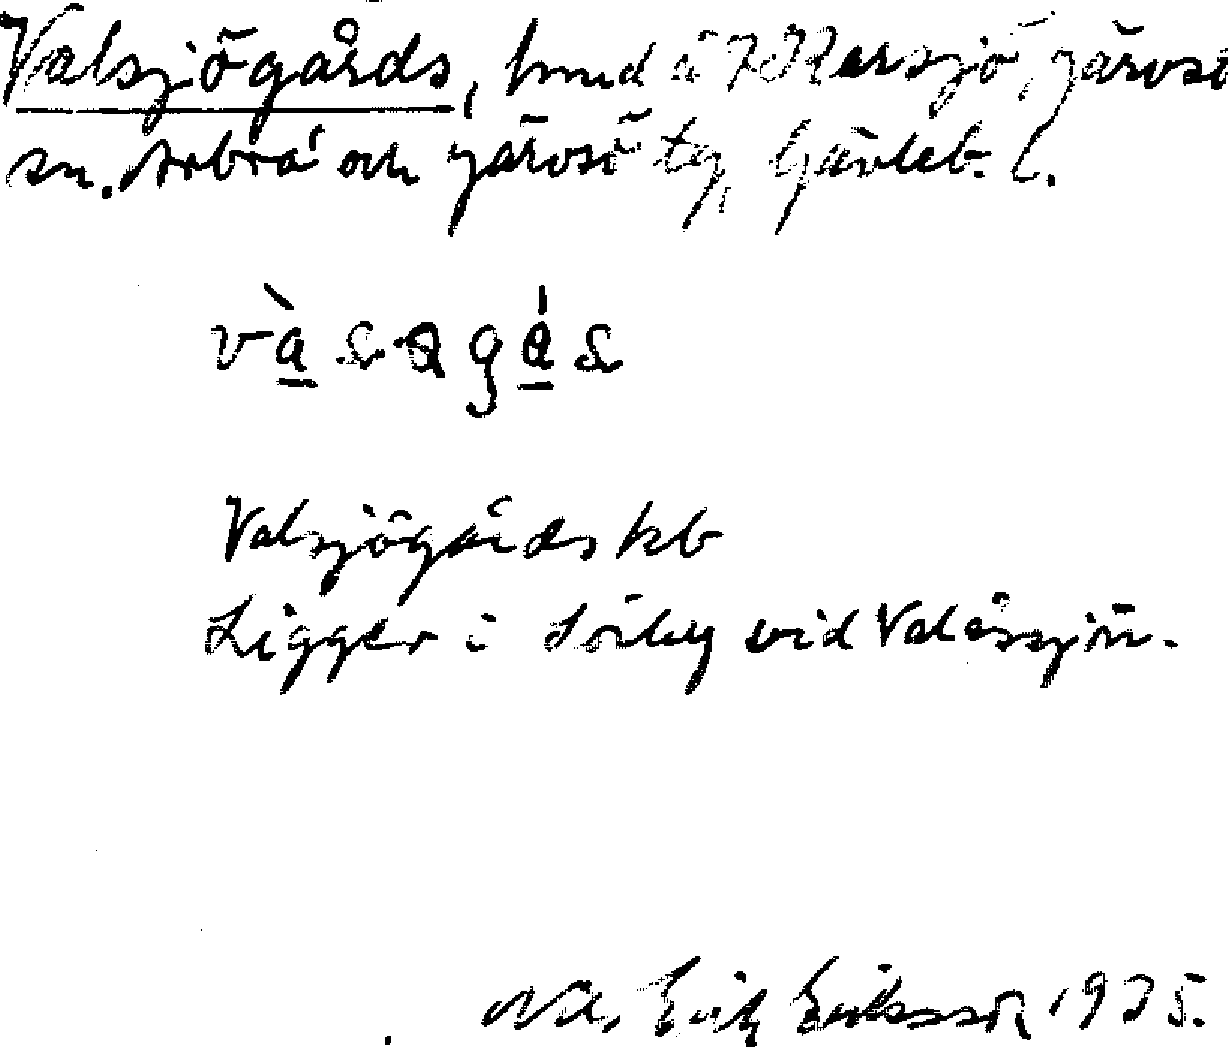 Valsjögårds, hmd å 7 Ytersjö, Järvsö
sn. Arbrå och Järvsö tg, Gävleb. l.
vàsagás
Valsjögårds kb
Ligger i Sörby vid Valåssjön.
Erik Eriksson 1935.